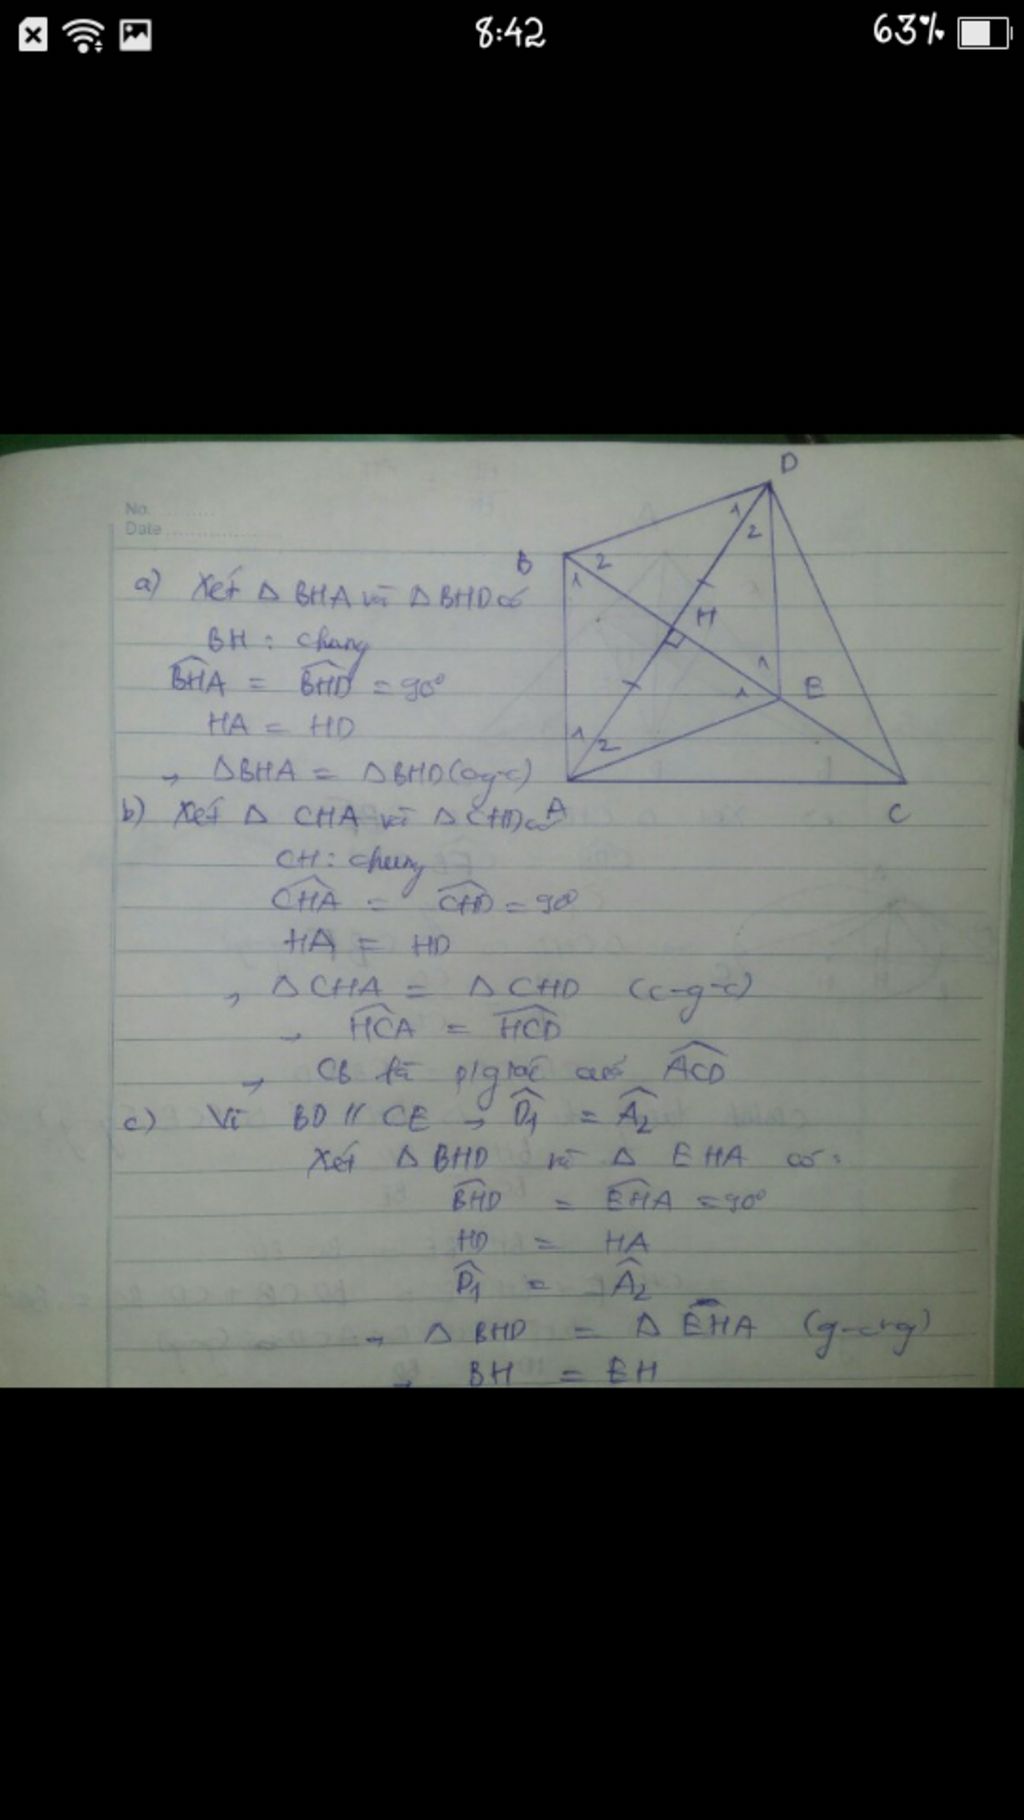 8:42
63%
No.
Date
D
1
2
B
2
1
a) Xét Δ BHA và Δ BHD có
H
BH : chung
1
BHA = BHD = 90°
1
E
HA = HD
1
2
→ ΔBHA = ΔBHD (c-g-c)
A
C
b) Xét Δ CHA và Δ CHD có
CH : chung
CHA = CHD = 90°
HA = HD
→ Δ CHA = Δ CHD (c-g-c)
→ HCA = HCD
→ CB là p/giác của ACD
c) Vì BD // CE → D1 = A2
Xét Δ BHD và Δ EHA có :
BHD = EHA = 90°
HD = HA
D1 = A2
→ Δ BHD = Δ EHA (g-c-g)
→ BH = EH